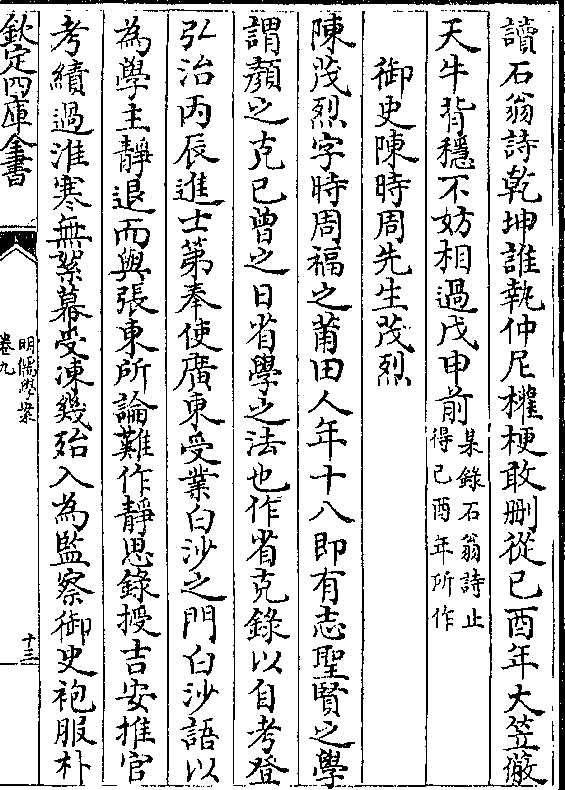 讀石翁詩乾坤誰執仲尼權梗敢刪從已酉年大笠儆
天牛背穩不妨相過戊申前某錄石翁詩止得已酉年所作
御史陳時周先生茂烈
陳茂烈字時周福之莆田人年十八即有志聖賢之學
謂顏之克已曾之日省學之法也作省克錄以自考登
弘治丙辰進士第奉使廣東受業白沙之門白沙語以
為學主靜退而與張東所論難作靜思錄授吉安推官
考績過淮寒無絮幕受凍幾殆入為監察御史袍服朴
欽定四庫全書
明儒學案
卷九
十三